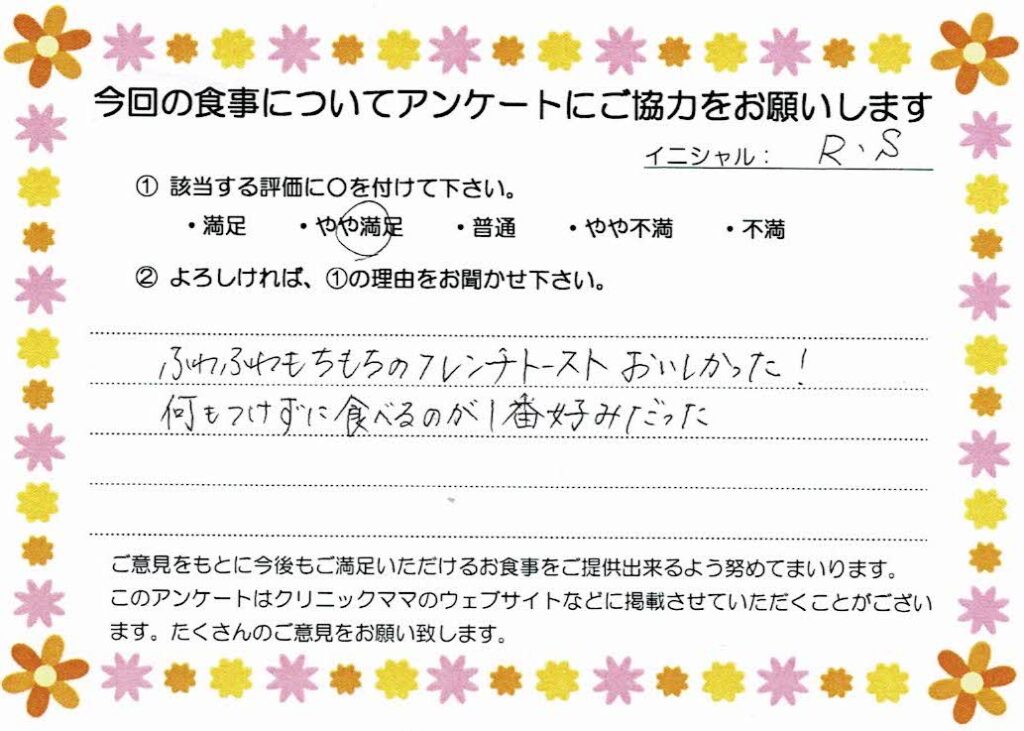 今回の食事についてアンケートにご協力をお願いします
イニシャル： R、S
① 該当する評価に○を付けて下さい。
・満足 ・やや満足 ・普通 ・やや不満 ・不満
② よろしければ、①の理由をお聞かせ下さい。
ふわふわもちもちのフレンチトースト おいしかった！
何もつけずに食べるのが1番好みだった
ご意見をもとに今後もご満足いただけるお食事をご提供出来るよう努めてまいります。
このアンケートはクリニックママのウェブサイトなどに掲載させていただくことがござい
ます。たくさんのご意見をお願い致します。